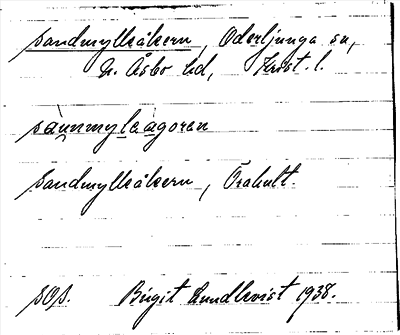 Sandmyllsåkern, Oderljunga sn,
N. Åsbo hd, Krist. l.
sàunmylaàgoran
Sandmyllsåkern, Örahult.
SOS. Birgit Lundkvist 1938.